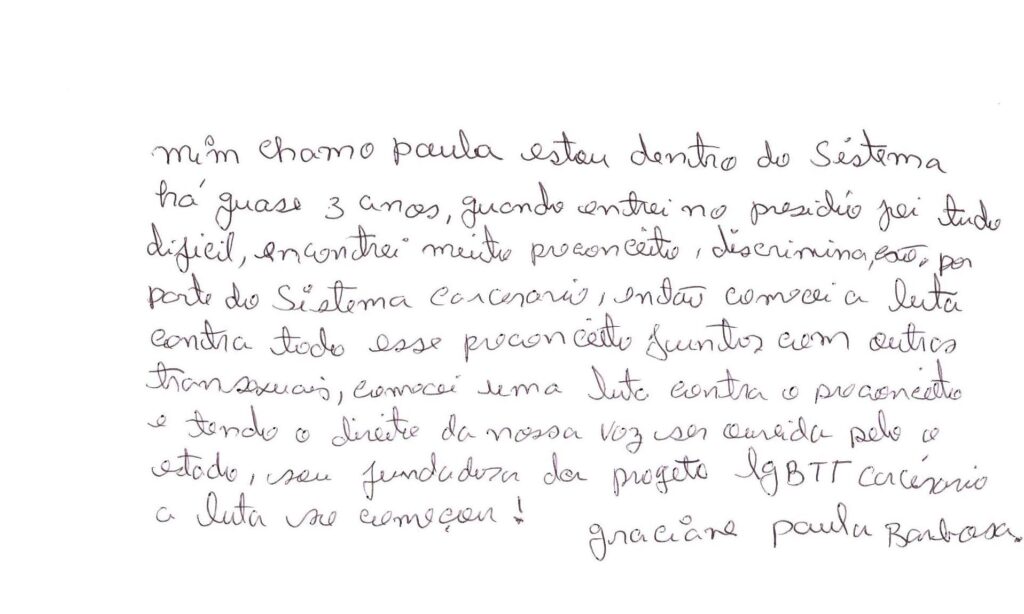 mim chamo paula estou dentro do Séstema
há guase 3 anos, guando entrei no presidio foi tudo
dificil, encontrei muito proconceito, discriminação, por
parte do Sistema carcerario, então comecei a luta
contra todo esse proconceito juntos com outros
transexuais, comecei uma luta contra o proconceito
e tendo o direito da nossa voz ser ouvida pelo o
estado, sou fundadora da progeto lgBTT carcérario
a luta so começou!
graciane paula Barbosa.